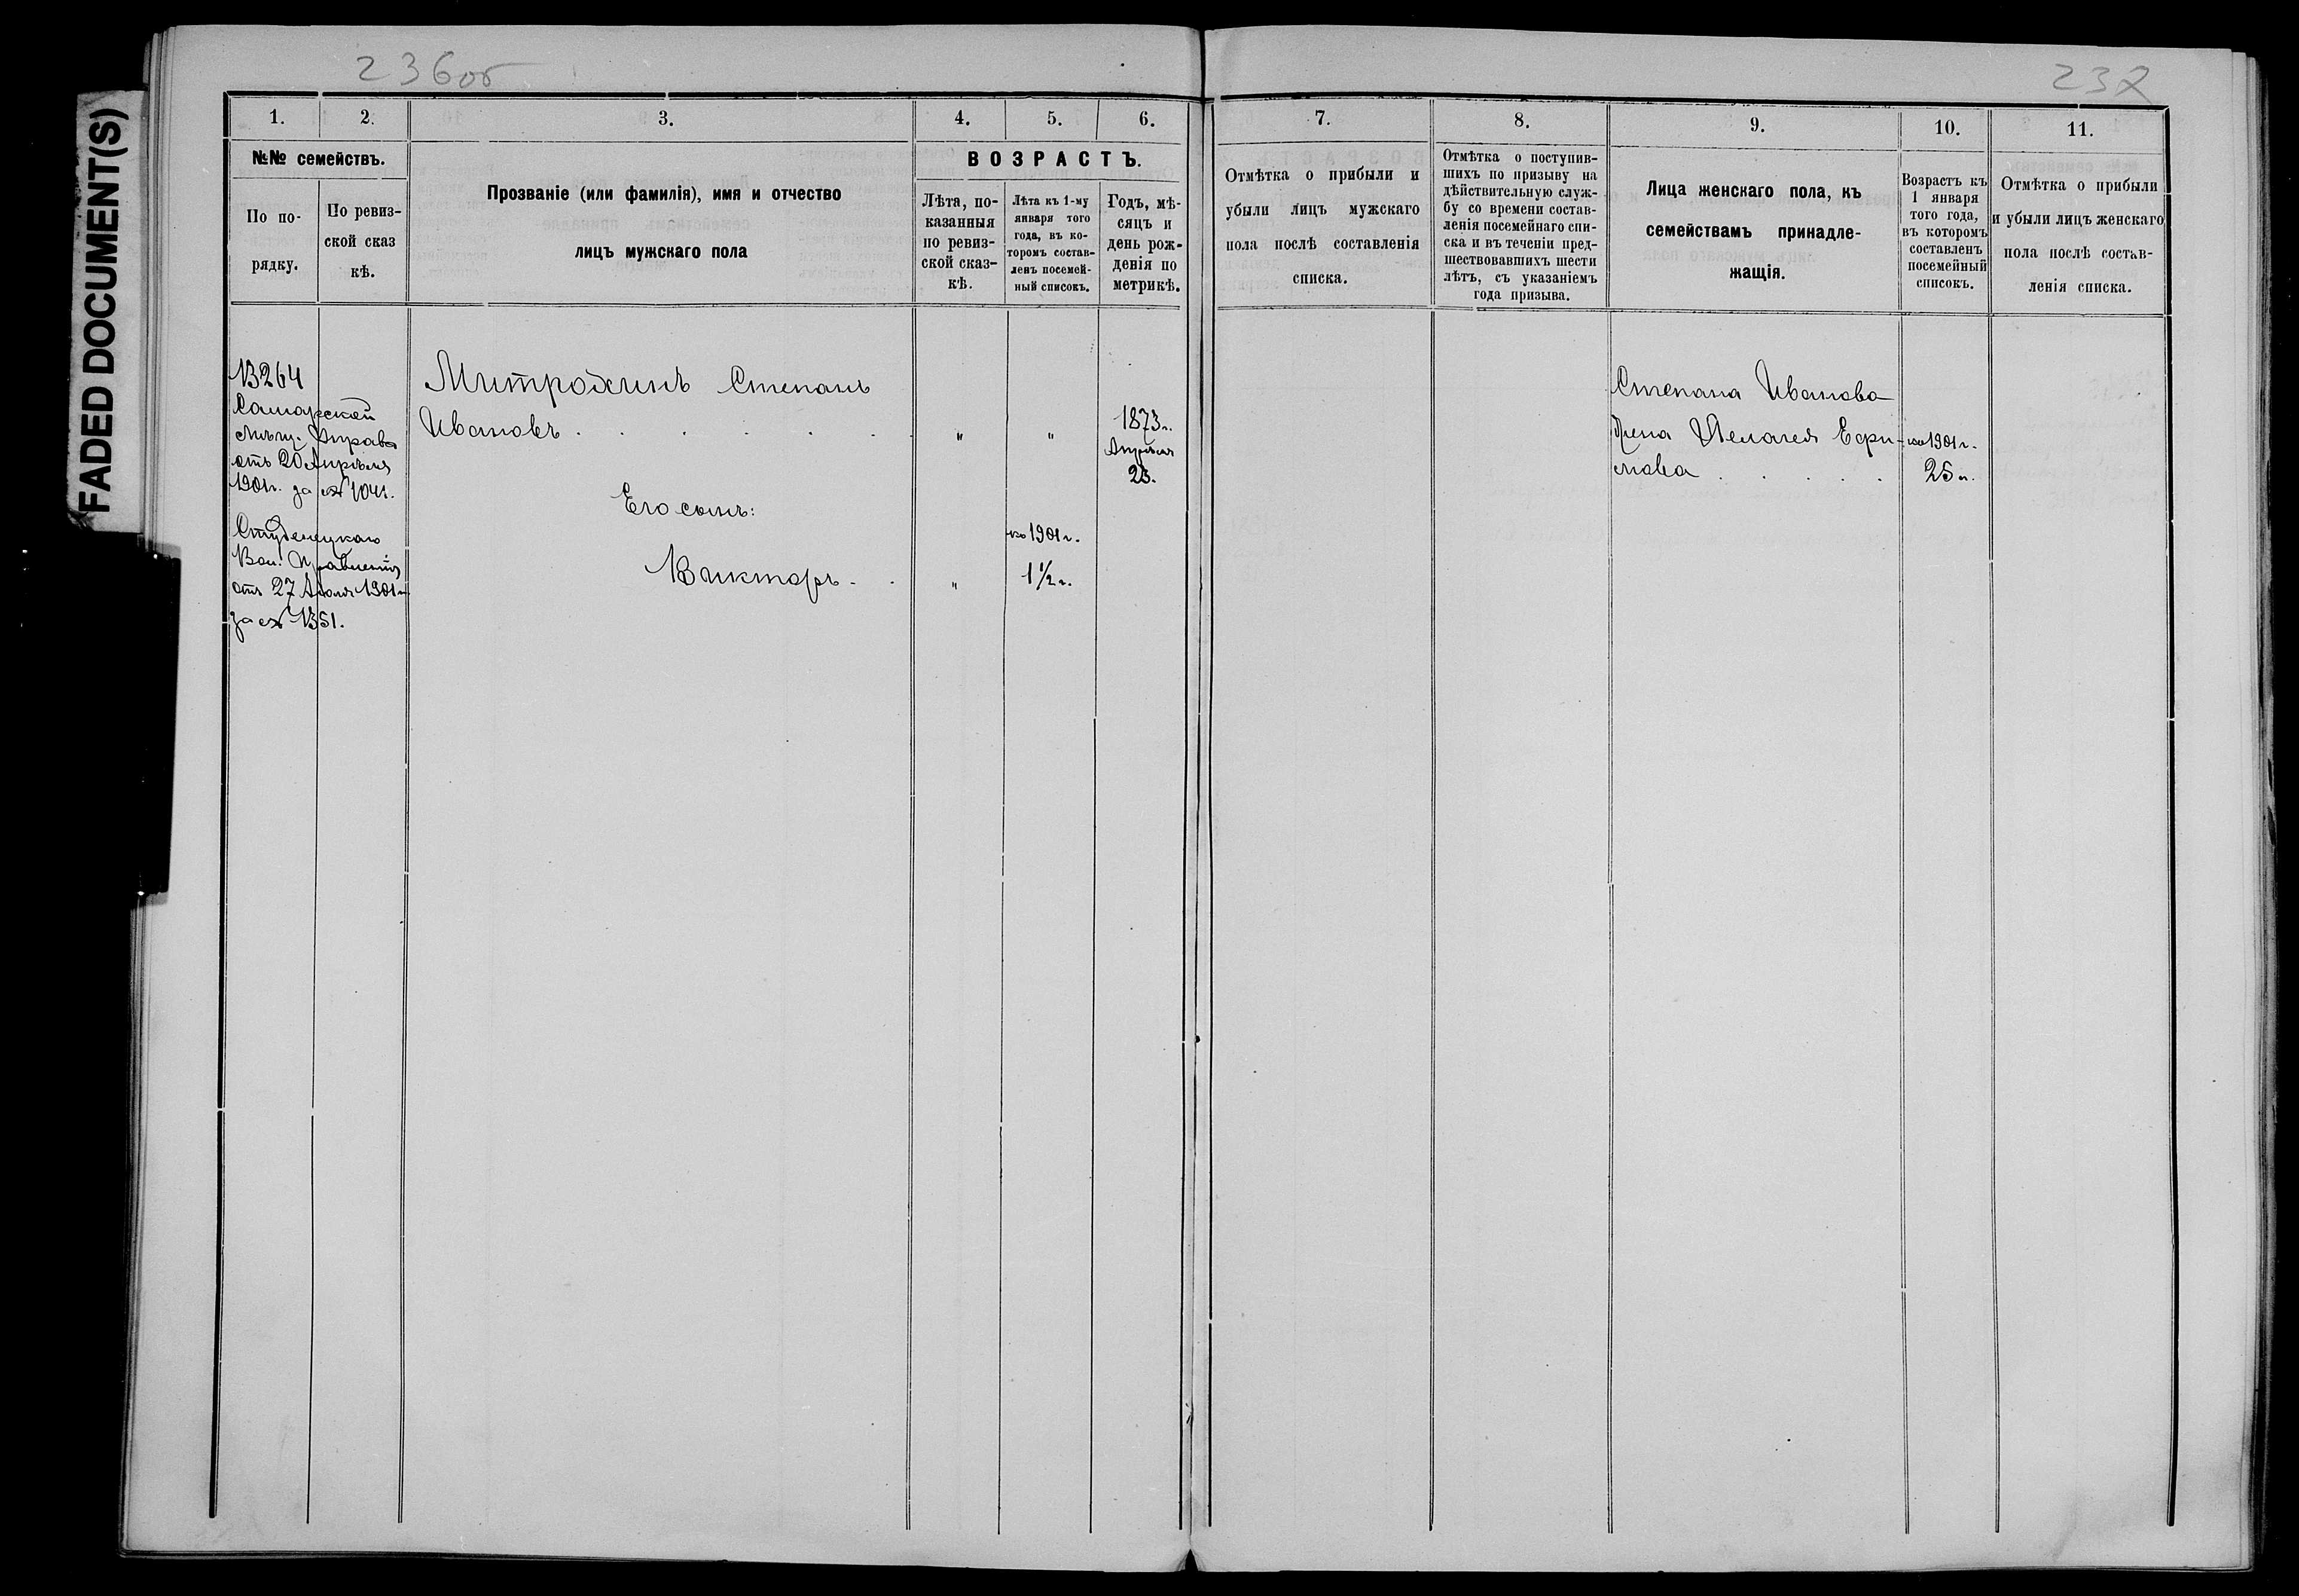 FADED DOCUMENT(S)
236об
237
1.
2.
3.
4.
5.
6.
№№ семействъ.
По по-
рядку.
По ревиз-
ской сказ
кѣ.
Прозваніе (или фамилія), имя и отчество
лицъ мужскаго пола
ВОЗРАСТЪ.
Лѣта, по-
казанныя
по ревиз-
ской сказ-
кѣ.
Лѣта къ 1-му
января того
года, въ ко-
торомъ состав-
ленъ посемей-
ный списокъ.
Годъ, мѣ-
сяцъ и
день рож-
денія по
метрикѣ.
13264
Самарской
мѣщ. Управы
отъ 20 Апрѣля
1901г. за № 1041.
Студенецкаго
Вол. Правленія
отъ 27 1901г
за № 1351.
Митрохинъ Степанъ
Ивановъ . . . . . .
Его сынъ:
Викторъ - .
"
"
1873г.
Апрѣля
23.
къ 1901г.
"
1½ г.
7.
8.
9.
10.
11.
Отмѣтка о прибыли и
убыли лицъ мужскаго
пола послѣ составленія
списка.
Отмѣтка о поступив-
шихъ по призыву на
дѣйствительную служ-
бу со времени состав-
ленія посемейнаго спи-
ска и въ теченіи пред-
шествовавшихъ шести
лѣтъ, съ указаніемъ
года призыва.
Лица женскаго пола, къ
семействамъ принадле-
жащія.
Возрастъ къ
1 января
того года,
въ которомъ
составленъ
посемейный
списокъ.
Отмѣтка о прибыли
и убыли лицъ женскаго
пола послѣ состав-
ленія списка.
Степана Иванова
жена Пелагея Ефи-
мова . . . . .
къ 1901г.
25 л.